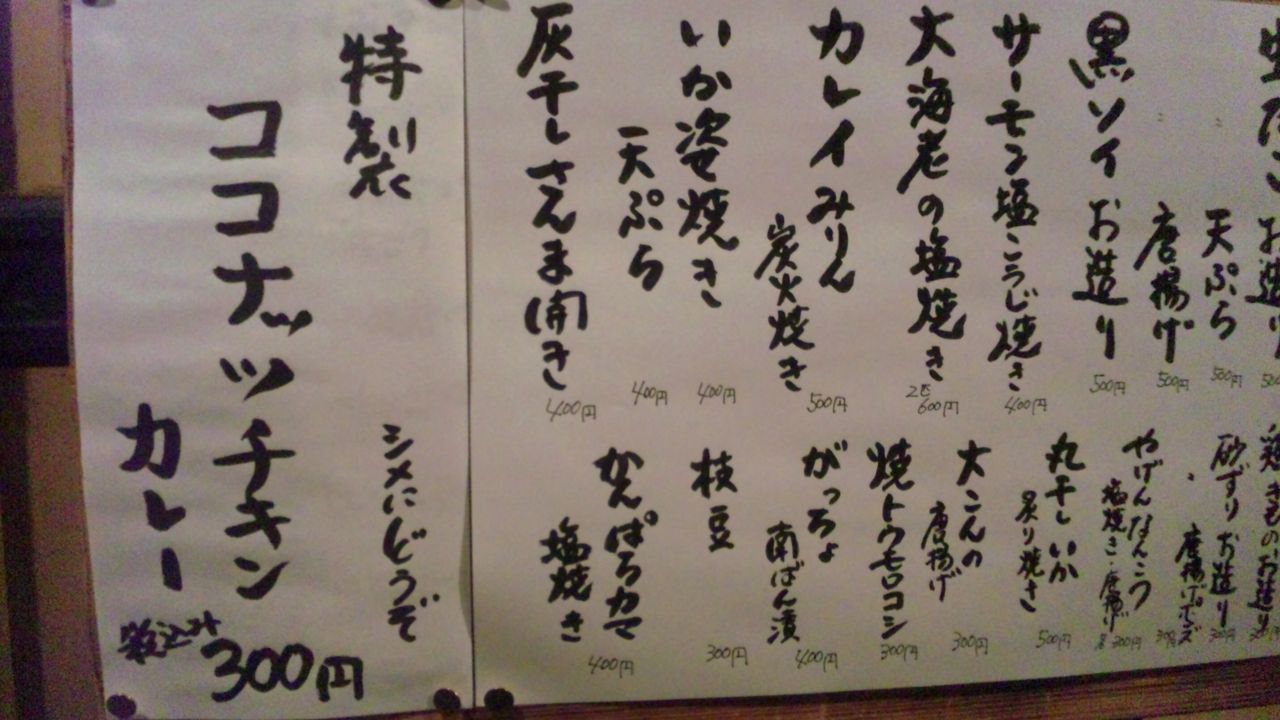 お造り
天ぷら
500円
唐揚げ
500円
黒ソイお造り
500円
サーモン塩こうじ焼き
400円
大海老の塩焼き
2匹
600円
カレイみりん
炭火焼き
500円
いか姿焼き
400円
天ぷら
400円
灰干しさんま開き
400円
鶏きものお造り
砂ずりお造り
300円
唐揚げポンズ
300円
やげんなんこつ
塩焼き・唐揚げ
300円
丸干しいか
炙り焼き
500円
大こんの
唐揚げ
300円
焼トウモロコシ
300円
がっちょ
南ばん漬
400円
枝豆
300円
かんぱちカマ
塩焼き
400円
特製
ココナッツチキン
カレー
シメにどうぞ
税込み
300円